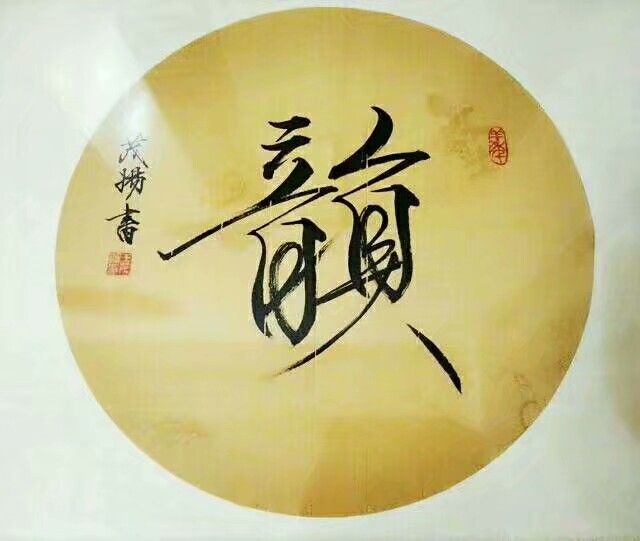 韻
茂揚書